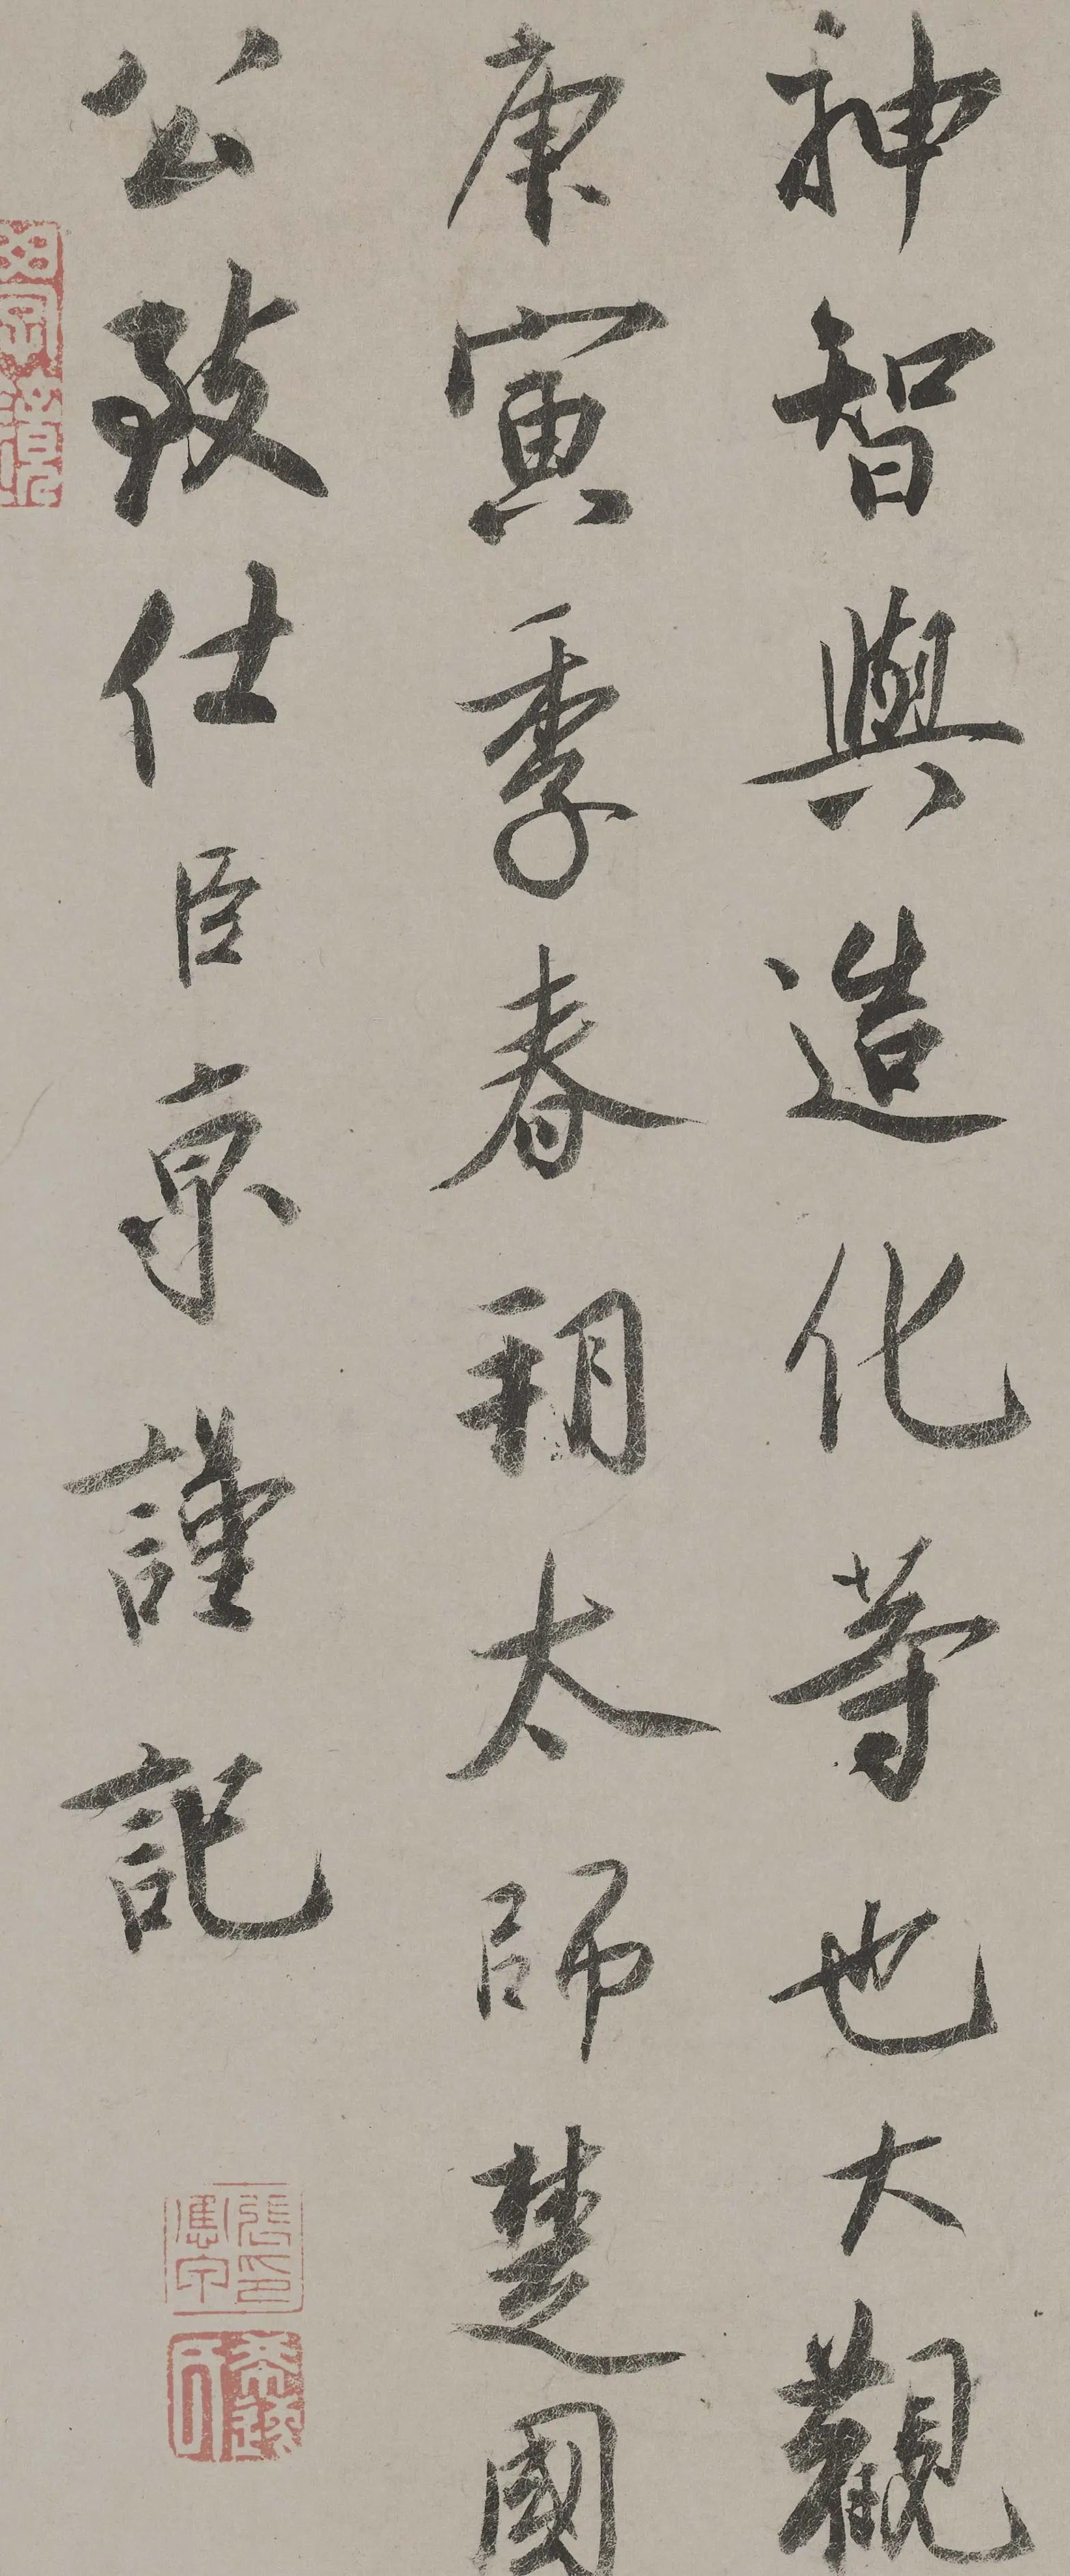 神智與造化等也大觀
庚寅季春朔太師楚國
公致仕臣京謹記